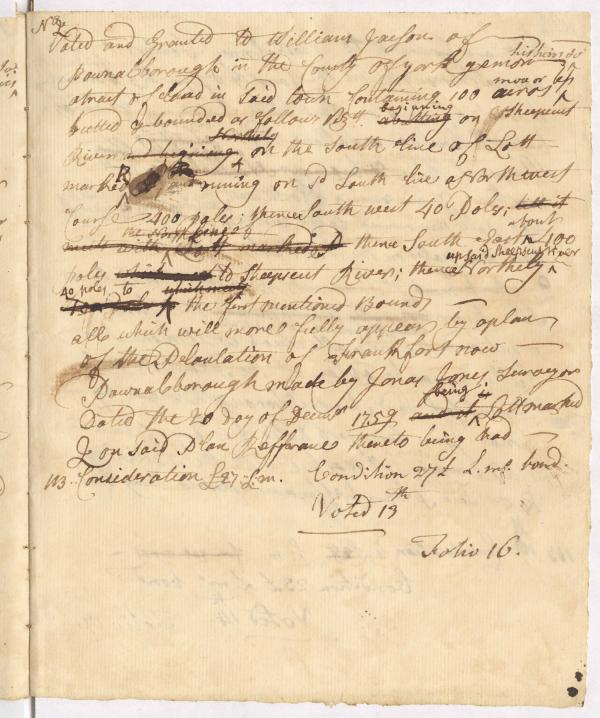 No 2
Voted and Granted to William Jacson of
Pownalborough in the County of york yemon his heirs &c
atract of Land in said town Containing 100 acros moar or les
butted & bounded as follows Viz.t beginning abutting on Sheepscut
River and bigining on the South line of Lott
marked R and runing on sd South line a North west
Course 400 poles; thence South west 40 Poles;
thence South East about 400
poles to Sheepscut River; thence up said Sheepscut River Northerly
40 poles to the first mentioned Bound,
all which will more fully appear by a plan
of the Plantation of Frankfort now
Pownalborough made by Jonas Jones Surveyor
Dated the 20 day of Decemr 1759 and it being Lott marked
Q on said Plan Refferance thereto being had
113. Consideration £27. L.m. Condition 27£ L. my. bond.
Voted 13th
Folio 16.